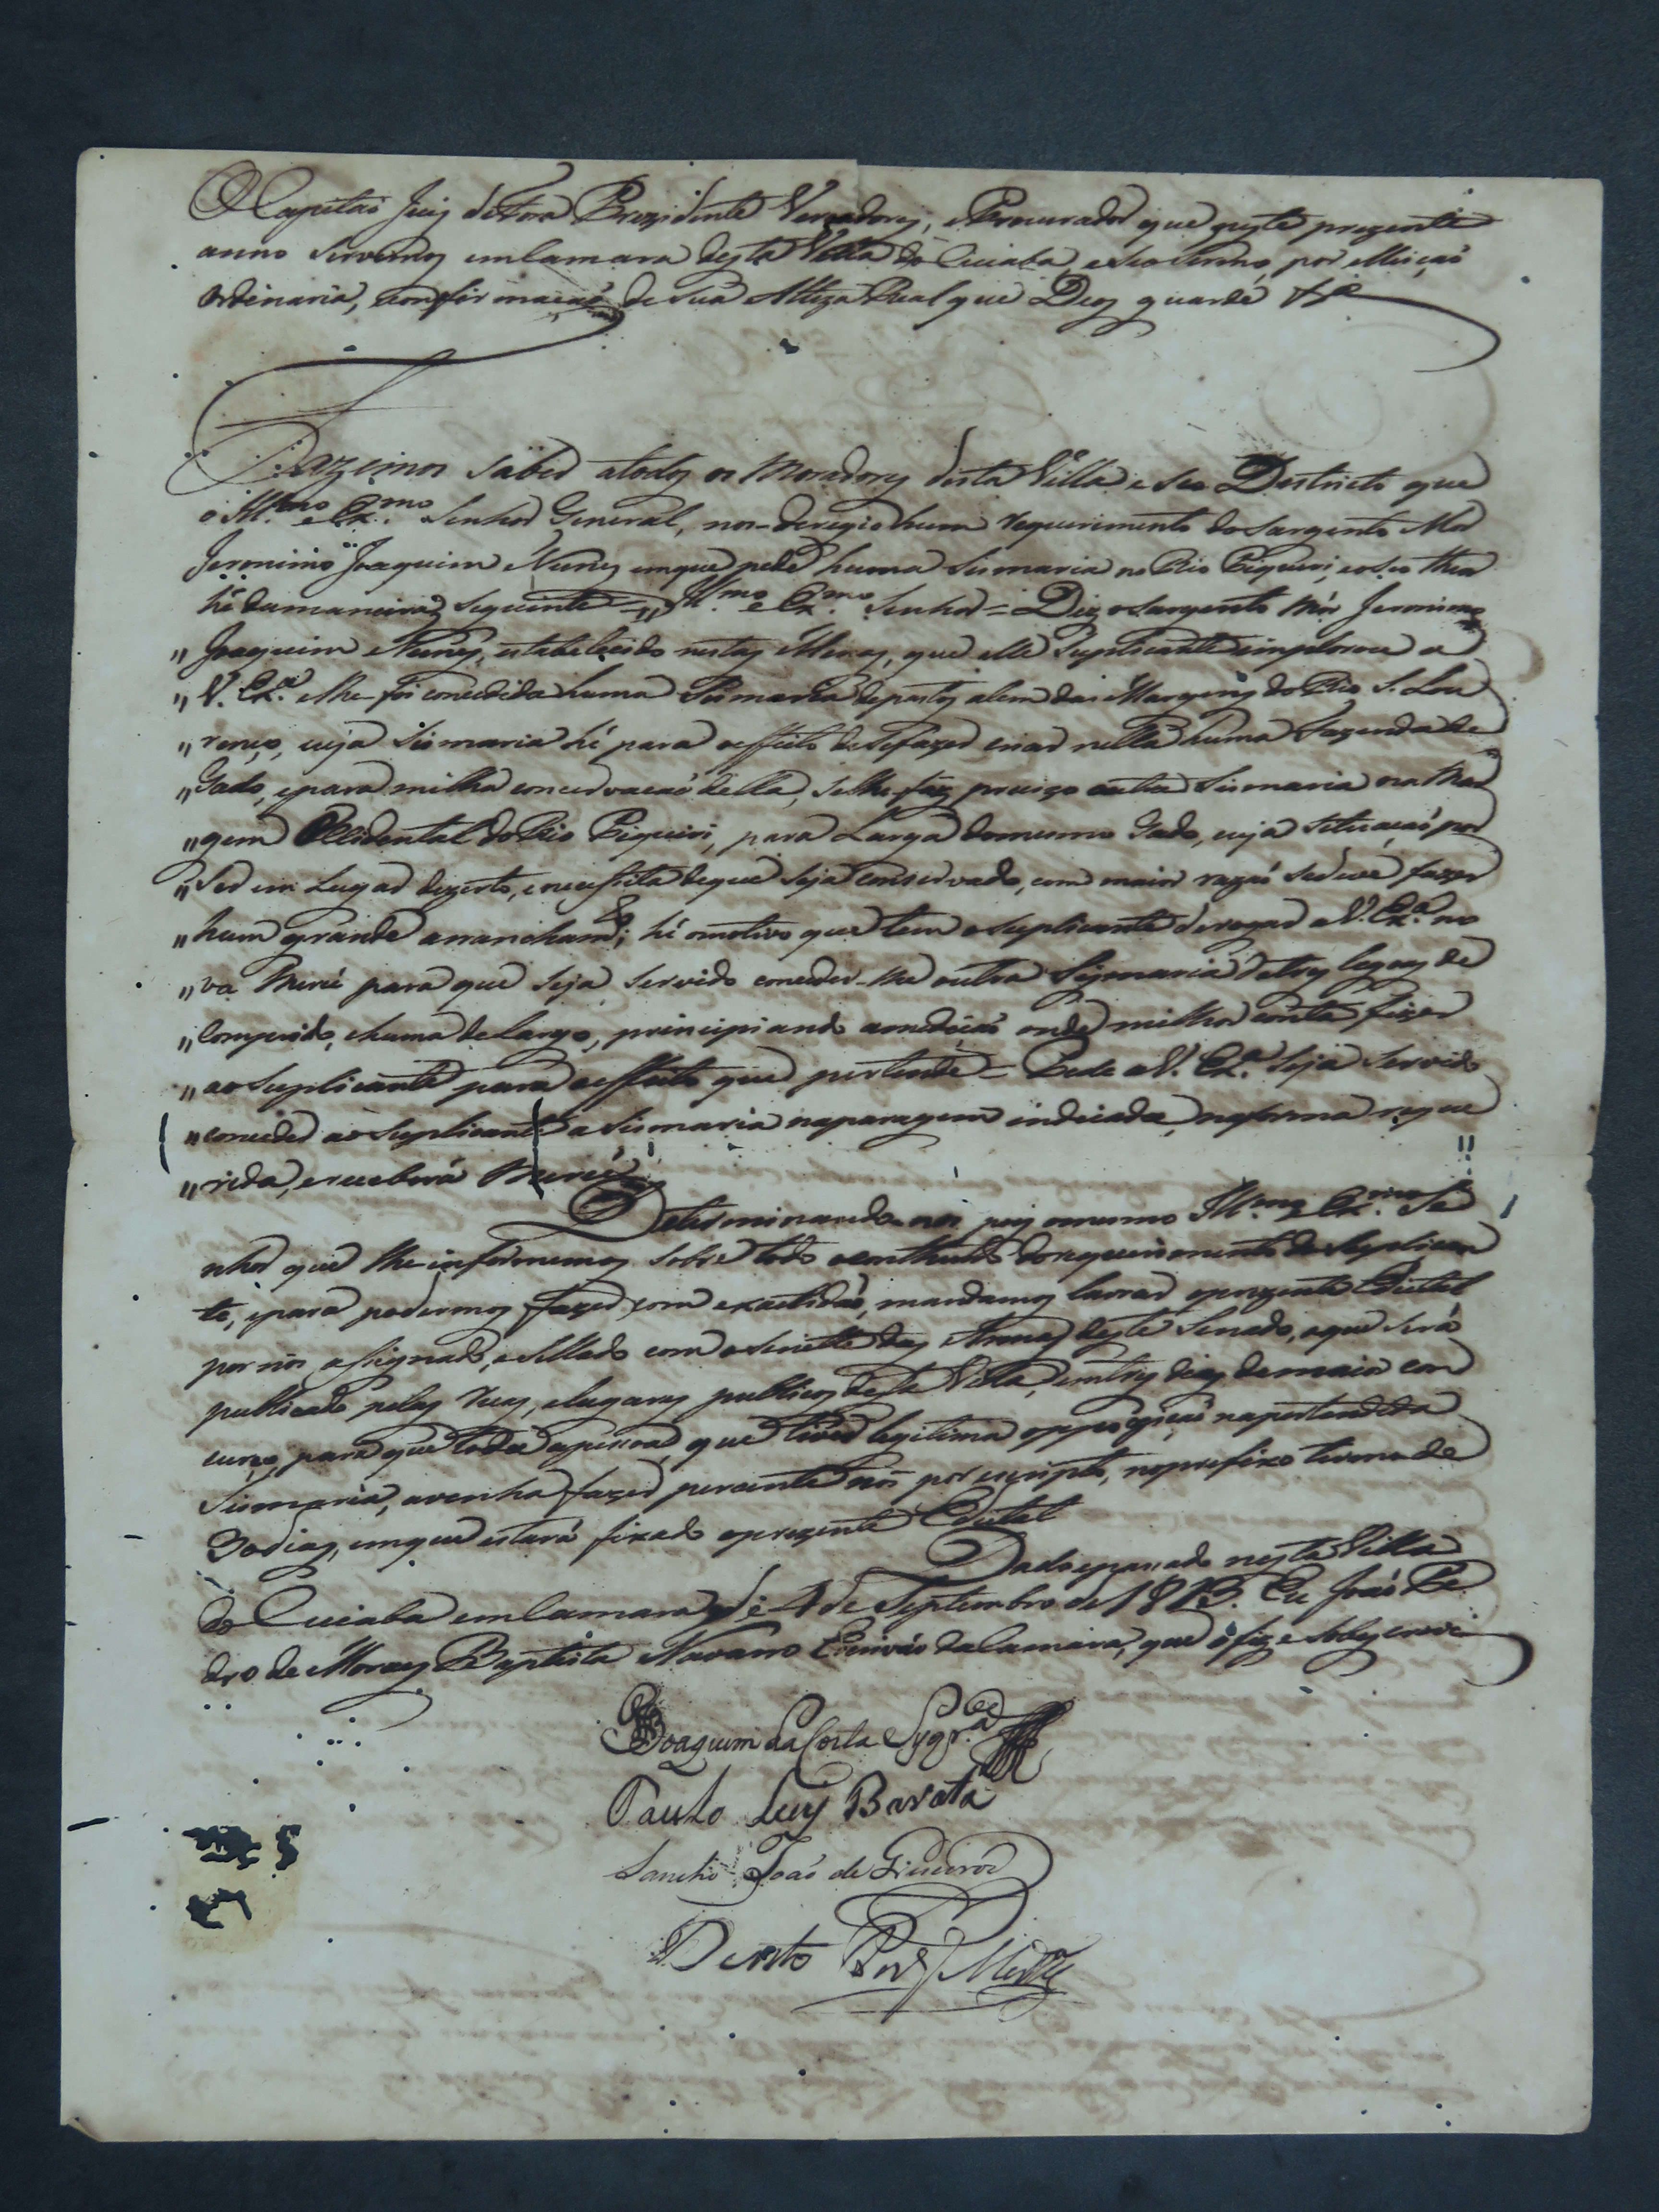 O Capitaõ Juiz de Fora Prezidente Vereadores, e Procurador que neste prezente
anno servemos em Camara desta Villa do Cuiaba, e seo termo, por elleiçaõ
Ordinaria, e confirmaçaõ de Sua Alteza Real que Deos guarde &ª
Fazemos saber a todos os Moradores desta Villa e seo Destricto que
o Ill.mo e Ex.mo Senhor General, nos-deregio hum requerimento do Sargento Mor
Jeronimo Joaquim Nunes em que pede huma Sismaria no Rio Piquiri, e o seo theor
hé da maneira seguinte = „ Ill.mo e Ex.mo Senhor = Diz o Sargento Mór Jeronimo
„ Joaquim Nunes, estabelecido nestas Minas, que elle Suplicante implorou a
„ V. Ex.ª e lhe foi concedida huma Sismaria de pastos alem das Margens do Rio S. Lou
„ renço, cuja Sismaria hé para o effeito de se fazer criar nella huma Fazenda de
„ Gado, e para milhor concervaçaõ della, se lhe faz precizo outra Sismaria na Mar
„ gem Occidental do Rio Piquiri, para Larga do mesmo Gado, cuja situaçaõ por
„ ser em Lugar dezerto, e necessita de que seja conservado, com maior razaõ se deve fazer
„ hum grande arranchamᵗᵒ; hé o motivo que tem o suplicante de rogar a V. Ex.ª no
„ va Mercé para que seja servido conceder-lhe outra Sismaria de tres legoas de
„ Comprido, e huma de largo, principiando a mediçaõ onde milhor conta fizer
„ ao Suplicante para o effeito que pertende = Pede a V. Ex.ª seja servido
„ conceder ao Suplicante a Sismaria na paragem indicada, na forma reque
„ rida, e receberá Mercé
Determinando-nos pois o mesmo Ill.mo e Ex.mo Se
nhor que lhe informemos sobre todo o contheudo do requerimento do Suplican
te, e para podermos fazer com exactidaõ, mandamos lavrar o prezente Edital
por nós assignado, e sellado com o sinette das Armas deste Senado, o que será
publicado pelas ruas, e lugares publicos desta Villa, em tres dias de maior con
curso, para que toda a pessoa, que tiver legitima oppoziçaõ na pertendida
Sismaria, a venha fazer perante nós por escripto, no prefixo termo de
30 dias, em que estará fixado o prezente Edital
Dado e passado nesta Villa
do Cuiaba em Camara de 4 de Septembro de 1813. Eu Joaõ Pe
dro de Moraes Baptista Navarro Escrivaõ da Camara, que o fiz e sobescrevi
Joaquim da Costa Syqr.ª
Paulo Luis Barata
Sancho Joaõ de
Bento